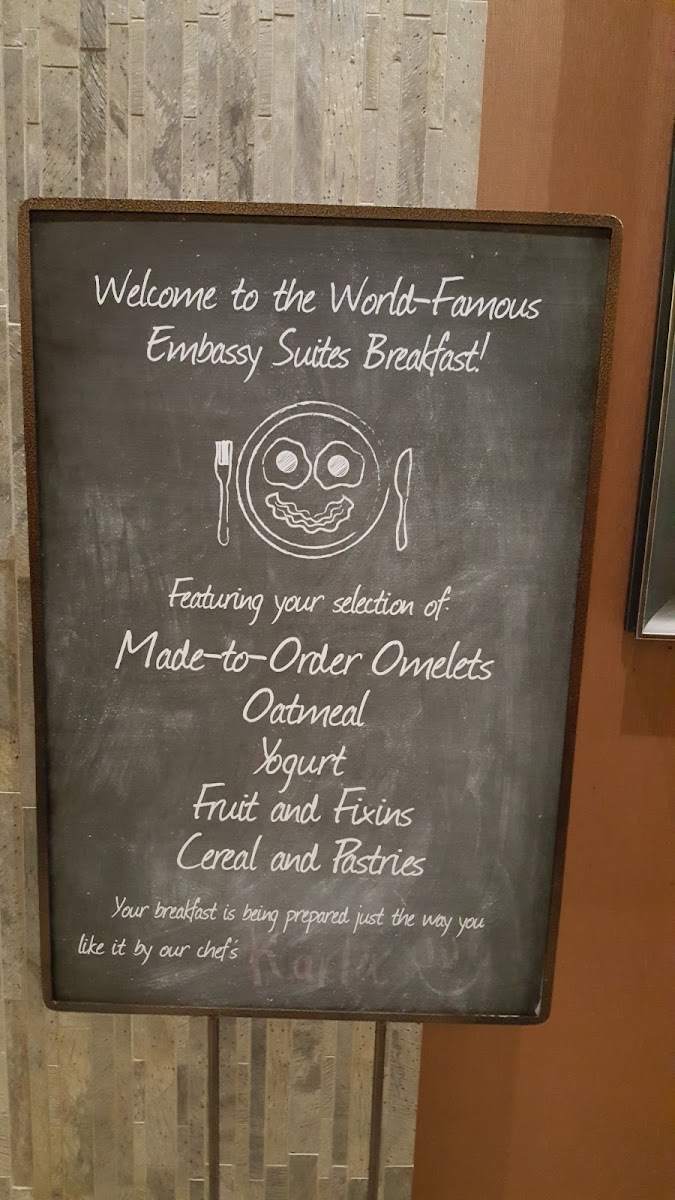 Welcome to the World-Famous
Embassy Suites Breakfast!
Featuring your selection of:
Made-to-Order Omelets
Oatmeal
Yogurt
Fruit and Fixins
Cereal and Pastries
Your breakfast is being prepared just the way you
like it by our chef's Karla